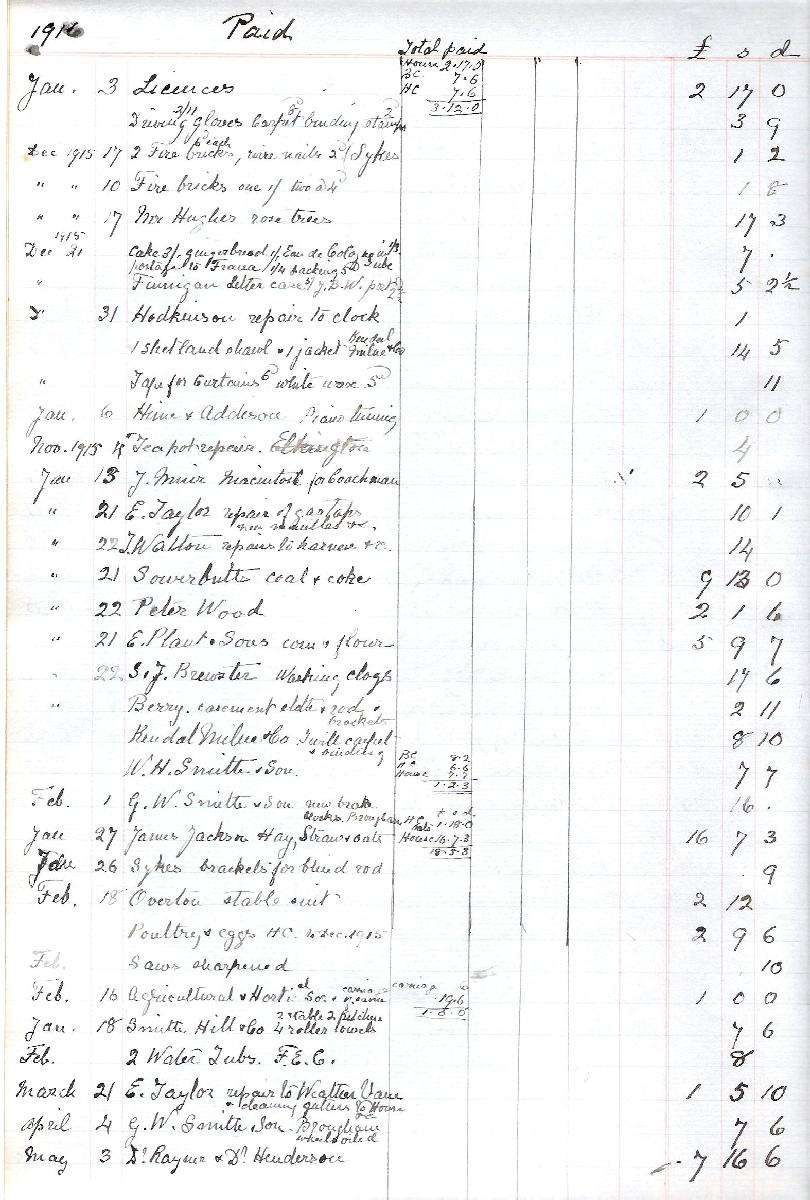 1916 Paid
Total paid £ s d
House 2.17.0
BC 7.6
Jan. 3 Licences HC 7.6 2 17 0
3.12.0
Driving Gloves 2/11 Carpet binding 8d stamps 2d 3 9
Dec 1915 17 2 Fire bricks, 6d each wire nails 2d / Sykes 1 2
" " 10 Fire bricks one 1/ two @ 4d 1 8
" " 17 Mr Hughes rose trees 17 3
1915
Dec 21 Cake 3/. gingerbread 1/ Eau de Cologne in 1/3
postage to France 1/4 packing 5d tube 7 .
" Finnigan letter case 5/ J.D.W. post 2½ 5 2½
" 31 Hodkinson repair to clock 1
1 Shetland shawl & 1 jacket Kendal Milne & Co 14 5
" Tape for curtains 6d white wove 5d 11
Jan. 6 Hime & Addison Piano tuning 1 0 0
Nov. 1915 Teapot repair. Elkington 4
Jan 13 J. Muir Macintosh for Coachman 2 5
" 21 E. Taylor repair of gas taps 10 1
new mantles &c.
" 22 J. Walton repairs to harness &c. 14
" 21 Sowerbutts coal & coke 9 13 0
" 22 Peter Wood 2 1 6
" 21 E. Plant & Sons corn & flour 5 9 7
" 22 S. J. Brewster Working clogs 17 6
" Berry. casement cloth & rod & 2 11
brackets
Kendal Milne & Co Twill carpet 8 10
& binding
BC 8.2
HC 6.6
W. H. Smith & Son. House 7.7 7 7
1.2.3
Feb. 1 G. W. Smith & Son new brake 16 .
blocks. Brougham
£ s d
HC 1.18.0
Jan 27 James Jackson Hay, Straw & oats House 16.7.3 16 7 3
18.5.3
Jan 26 Sykes brackets for blind rod . 9
Feb. 18 Overton stable suit 2 12
Poultry & eggs HC. Dec. 1915 2 9 6
Feb. Saws sharpened 10
Feb. 16 Agricultural & Horticl Soc 19.6 1 0 0
Jan. 18 Smith Hill & Co 2 table 2 4 roller towels 7 6
Feb. 2 Water Tubs. F.E.C. 8
March 21 E. Taylor repair to Weather Vane 1 5 10
& cleaning gutters to House
April 4 G. W. Smith & Son. Brougham 7 6
wheels oiled
May 3 Dr Rayner & Dr Henderson 7 16 6